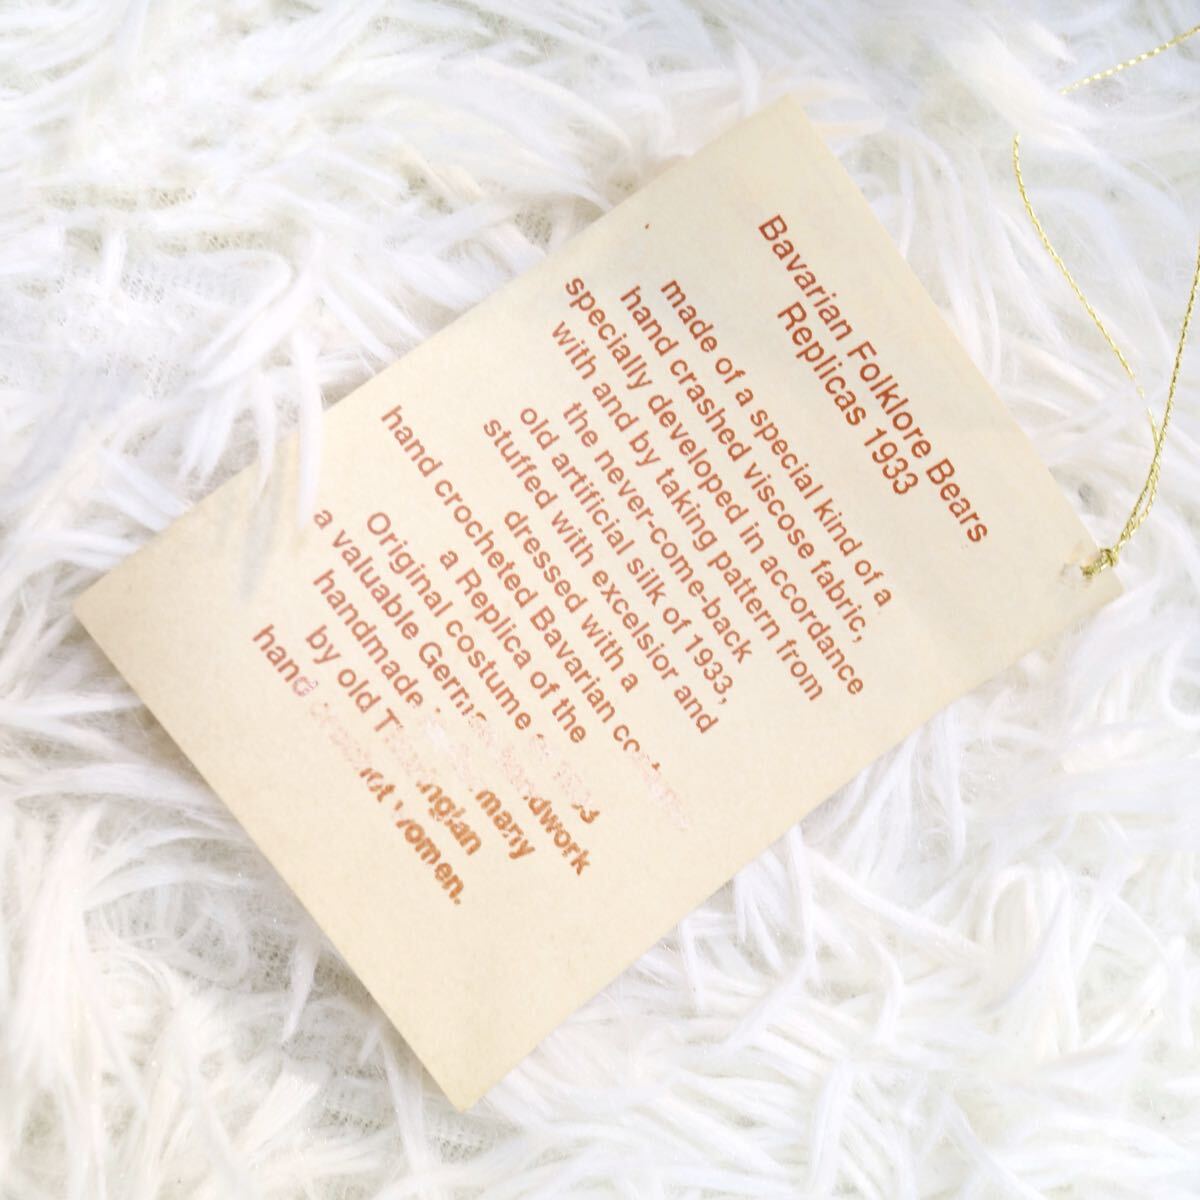 Bavarian Folklore Bears
Replicas 1933
made of a special kind of a
hand crashed viscose fabric,
specially developed in accordance
with and by taking pattern from
the never-come-back
old artificial silk of 1933,
stuffed with excelsior and
dressed with a
hand crocheted Bavarian costume,
a Replica of the
Original costume of 1933
a valuable German handwork
handmade in Germany
by old Thuringian
hand crochet women.